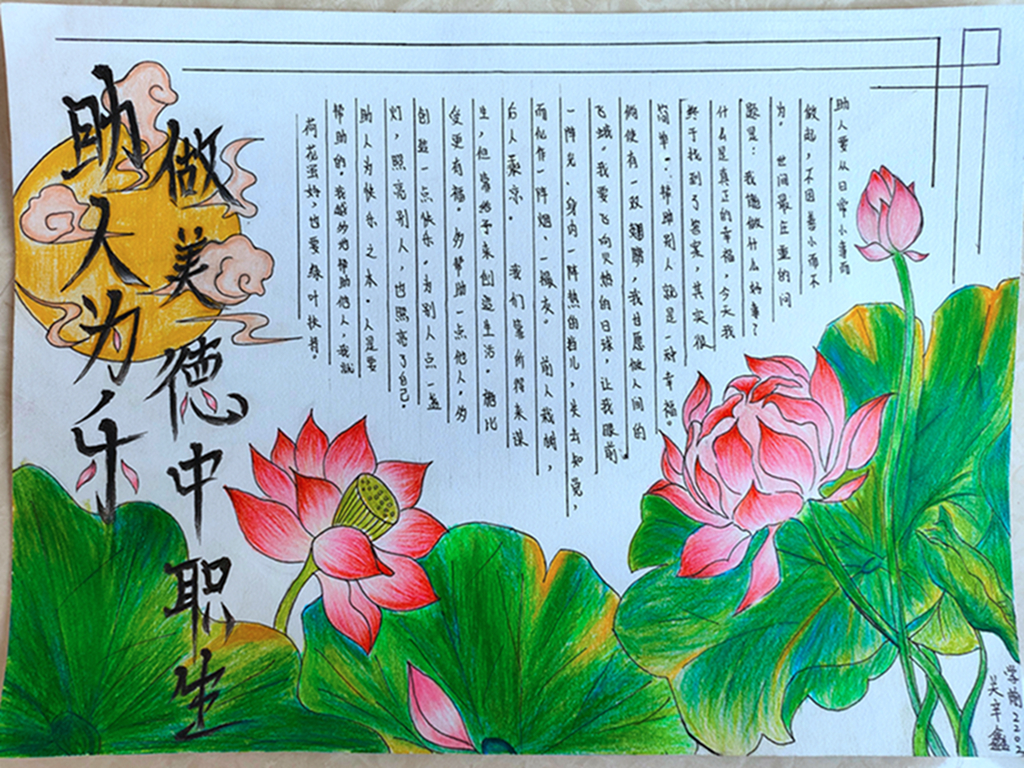 助人为乐
做美德中职生
助人要从日常小事而
做起，不因善小而不
为。世间最庄重的问
题是：我能做什么好事？
什么是真正的幸福，今天我
终于找到了答案，其实很
简单“：帮助别人就是一种幸福。
倘使有一双翅膀，我甘愿做人间的
飞蛾。我要飞向火热的日球，让我眼前
一阵光、身内一阵热的当儿，失去知觉，
而化作一阵烟、一撮灰。前人栽树，
后人乘凉．我们靠所得来谋
生，但靠给予来创造生活．施比
受更有福．为帮助一点他人．为
创造一点快乐．为别人点一盏
灯，照亮别人，也照亮了自己．
助人为快乐之本．人是要
帮助的．我越妙地帮助他人，我就
荷花虽好，也要绿叶扶持．
学前2202
关辛鑫